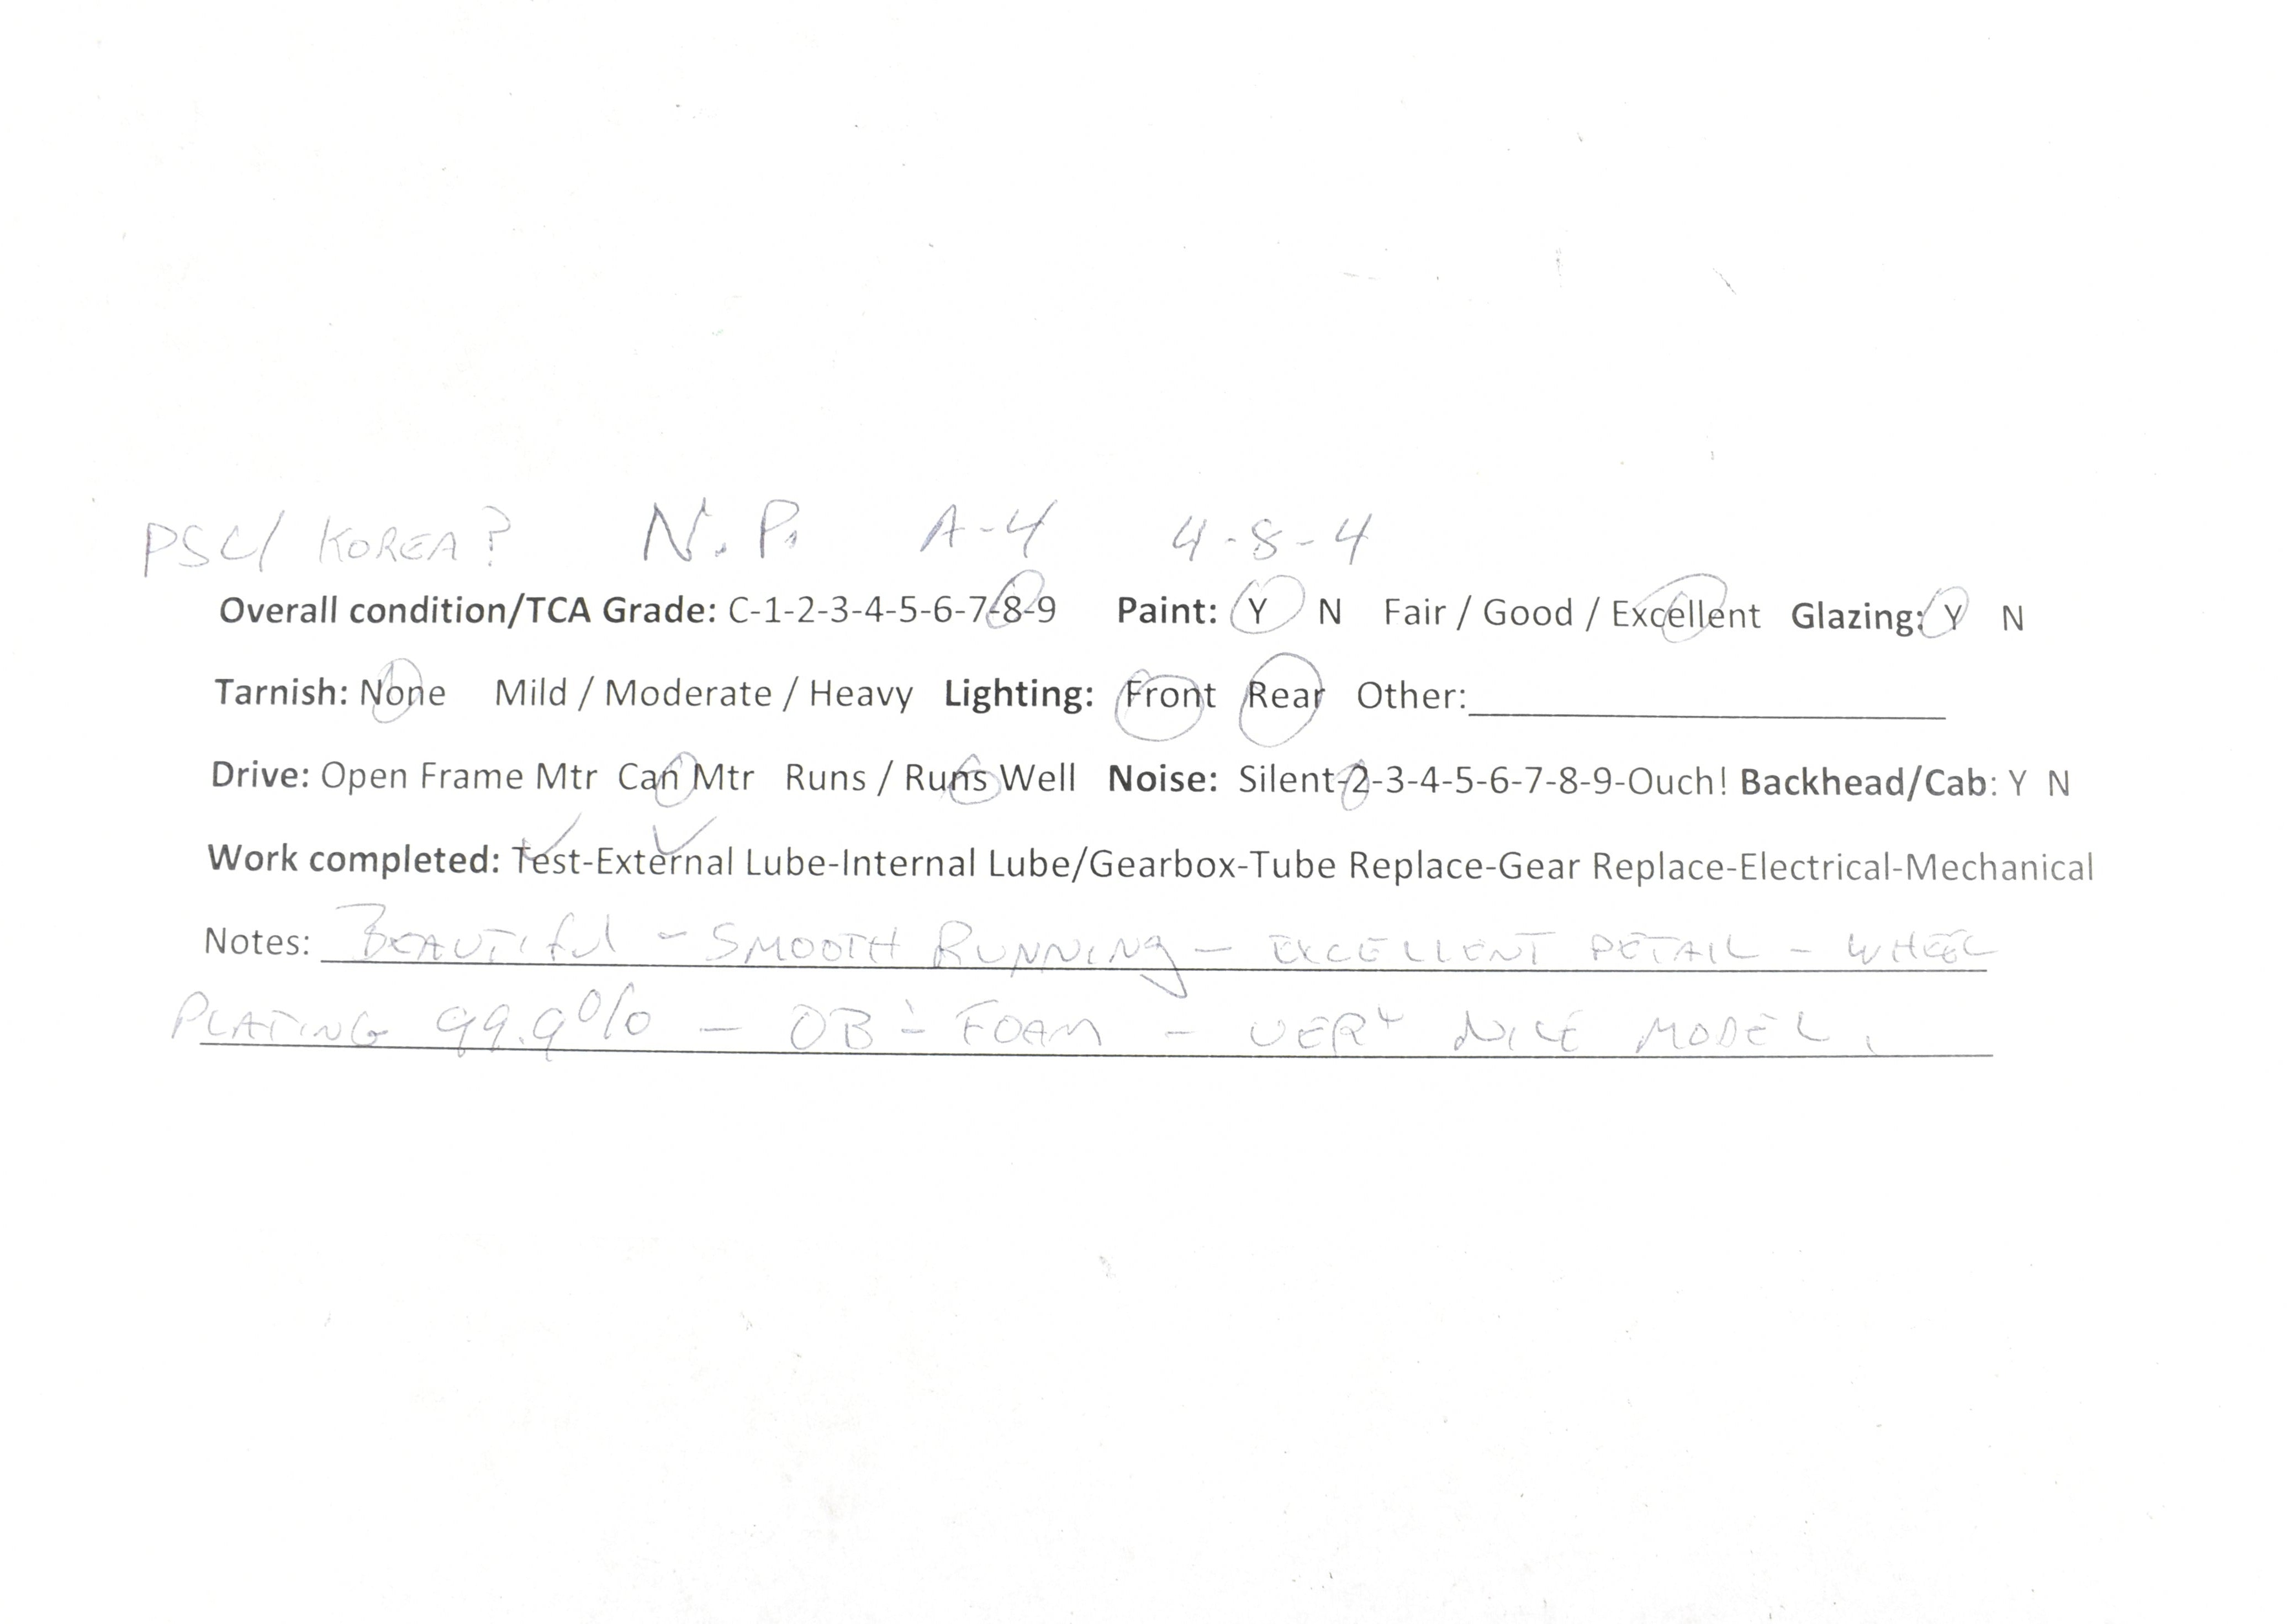 PSC/ KOREA? N.P. A-4 4-8-4
Overall condition/TCA Grade: C-1-2-3-4-5-6-7-8-9 Paint: Y N Fair / Good / Excellent Glazing: Y N
Tarnish: None Mild / Moderate / Heavy Lighting: Front Rear Other:
Drive: Open Frame Mtr Can Mtr Runs / Runs Well Noise: Silent-2-3-4-5-6-7-8-9-Ouch! Backhead/Cab: Y N
Work completed: Test-External Lube-Internal Lube/Gearbox-Tube Replace-Gear Replace-Electrical-Mechanical
Notes: BEAUTIFUL - SMOOTH RUNNING - EXCELLENT DETAIL - WHEEL
PLATING 99.9% - OB - FOAM - VERY NICE MODEL.